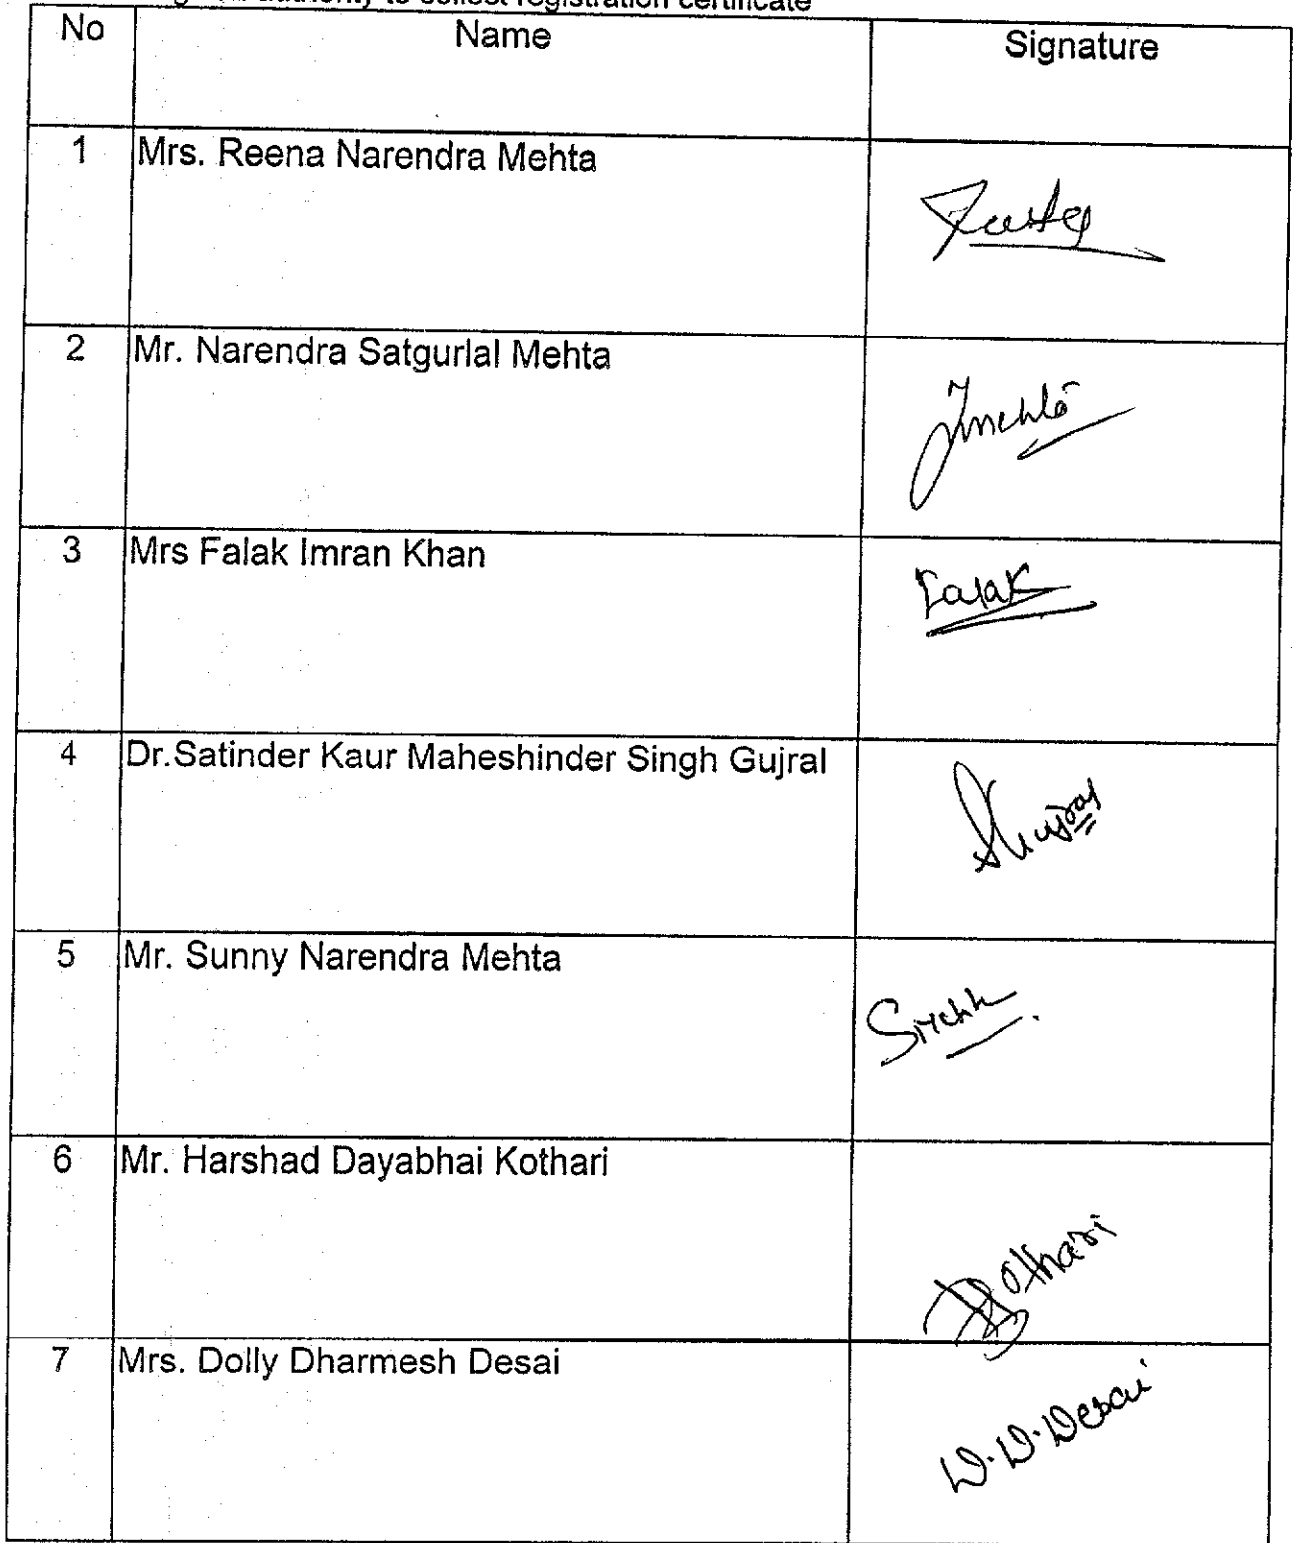 authority to collect registration certificate
No Name Signature
1 Mrs. Reena Narendra Mehta
2 Mr. Narendra Satgurlal Mehta
3 Mrs Falak Imran Khan Falak
4 Dr.Satinder Kaur Maheshinder Singh Gujral
5 Mr. Sunny Narendra Mehta
6 Mr. Harshad Dayabhai Kothari
Kothari
7 Mrs. Dolly Dharmesh Desai
D.D.Desai